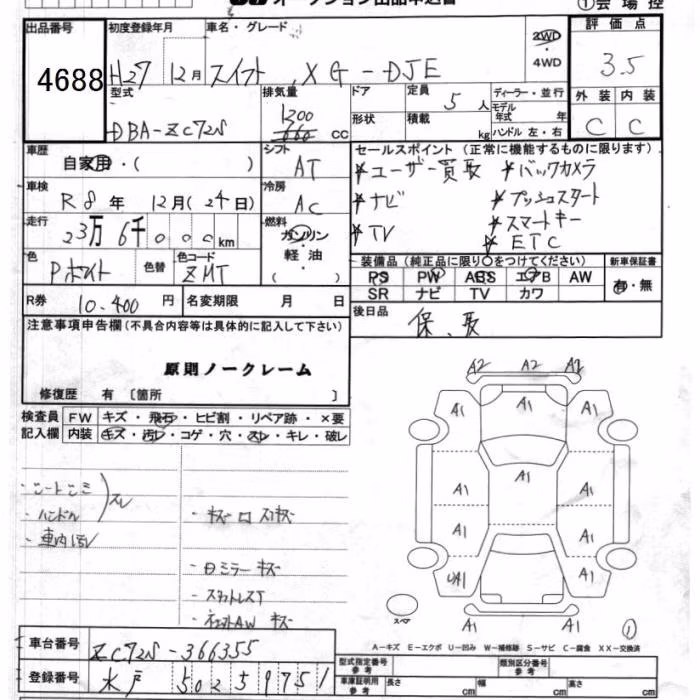 オークション出品申込書 ①会場控
出品番号 初度登録年月 車名・グレード 2WD 評価点
4688 H27 12月 スイフト, XG-DJE 4WD 3.5
型式 排気量 ドア 定員 5人 ディーラー・並行 外装 内装
DBA-ZC72S 1200 660 cc 形状 積載 kg モデル年式 年 ハンドル 左・右 C C
車歴 シフト セールスポイント (正常に機能するものに限ります)
自家用・( ) AT *ユーザー買取 *バックカメラ
車検 冷房 *ナビ *プッシュスタート
R8年 12月(24日) AC *スマートキー
走行 燃料 *TV *ETC
23万6千000km ガソリン
色 色替 色コード 軽油 装備品 (純正品に限り○をつけてください) 新車保証書
Pホワイト ZMT ( ) PS PW ABS エアB AW 有・無
R券 10.400円 名変期限 月 日 SR ナビ TV カワ
注意事項申告欄(不具合内容等は具体的に記入して下さい) 後日品 保、取
原則ノークレーム
修復歴 有 〔箇所 〕
検査員 FW キズ・飛石・ヒビ割・リペア跡・×要
記入欄 内装 キズ・汚レ・コゲ・穴・スレ・キレ・破レ
A2 A2 A2
A1 A1 A1
A1
A1 A1
A1 A1
UA1 A1
A1 A1
スペア ①
・ハンドル スレ
・車内汚レ
・ミラーキズ
A-キズ E-エクボ U-凹み W-補修跡 S-サビ C-腐食 XX-交換済
車台番号 ZC72S-366355
登録番号 水戸 502 5 9751
型式指定番号 参考 類別区分番号 参考
車庫証明用 参考 長さ cm 幅 cm 高さ cm